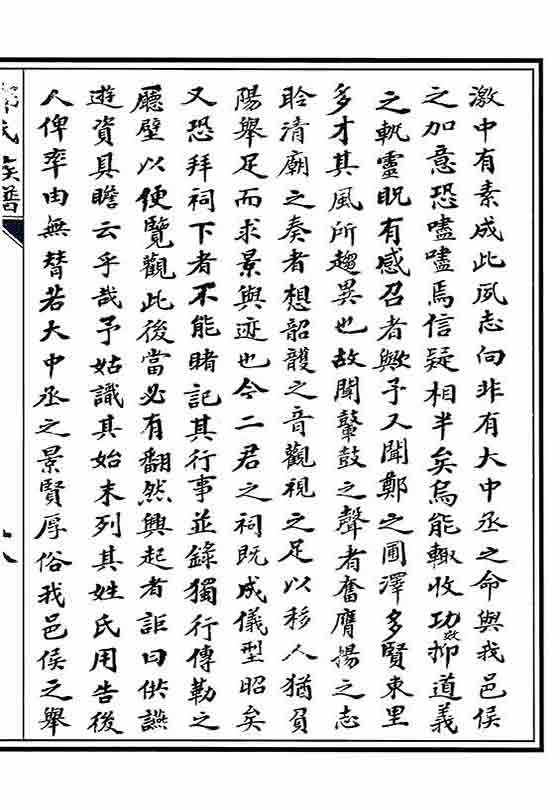 激中有素成此夙志向非有大中丞之命與我邑侯
之加意恐嚍嚍焉信疑相半矣烏能輙收功效抑道義
之軏靈貺有感召者歟予又聞鄭之圃澤多賢東里
多才其風所趨異也故聞鼙鼓之聲者奮鷹揚之志
聆清廟之奏者想韶頀之音觀視之足以移人猶負
陽舉足而求景與迹也今二君之祠既成儀型昭矣
又恐拜祠下者不能睹記其行事並錄獨行傳勒之
廳壁以便覽觀此後當必有翻然興起者詎曰供讌
遊資具瞻云乎哉予姑識其始末列其姓氏用告後
人俾率由無朁若大中丞之景賢厚俗我邑侯之舉
氏族譜
八